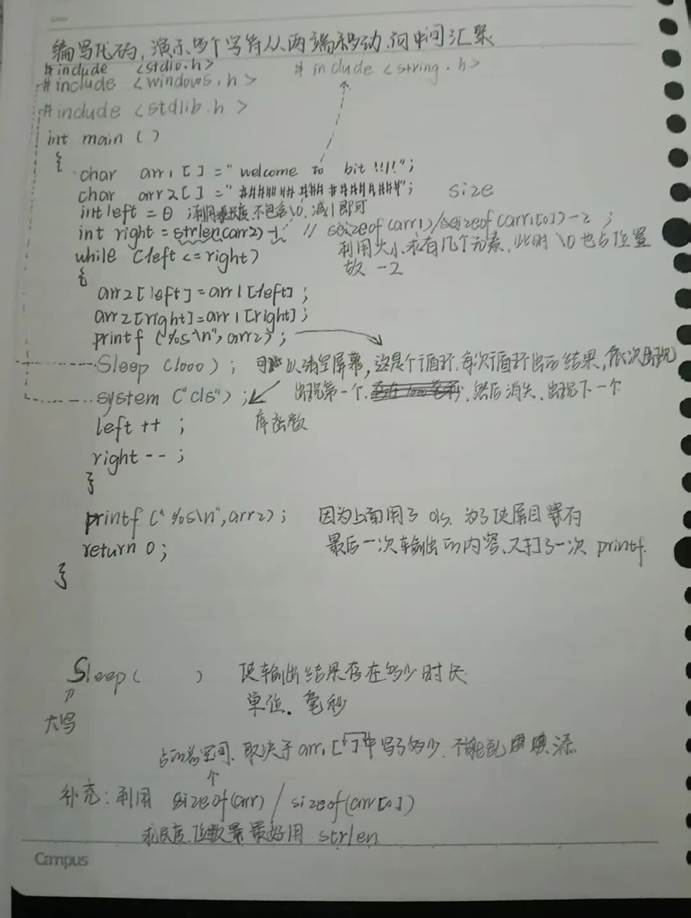 编写代码，演示多个字符从两端移动，向中间汇聚
#include <stdio.h> #include <string.h>
#include <windows.h>
#include <stdlib.h>
int main ()
{
char arr1[] = "welcome to bit !!!!";
char arr2[] = "###################";
int left = 0 利用 不包含\0, 减1即可 size
int right = strlen(arr2)-1 // sizeof(arr1)/sizeof(arr1[0])-2 ;
while (left <= right) 利用大小求有几个元素，此时\0也占位置
{ 故 -2
arr2[left] = arr1[left] ;
arr2[right] = arr1[right] ;
printf ("%s\n", arr2) ;
Sleep (1000) ; 以清空屏幕，这是个循环，每次循环出的结果，依次出现
system ("cls") ; 出现第一个，然后消失，出现下一个
left ++ ; 库函数
right -- ;
}
printf ("%s\n", arr2) ; 因为上面用了cls, 为了使屏目
return 0 ; 最后一次输出的内容，又打了一次 printf.
}
Sleep( ) 使输出结果存在多少时长
大写 单位、毫秒
占的总空间，取决于arr[]中写了多少，不能乱
补充：利用 sizeof(arr) / sizeof(arr[0])
求长度 最好用 strlen
Campus